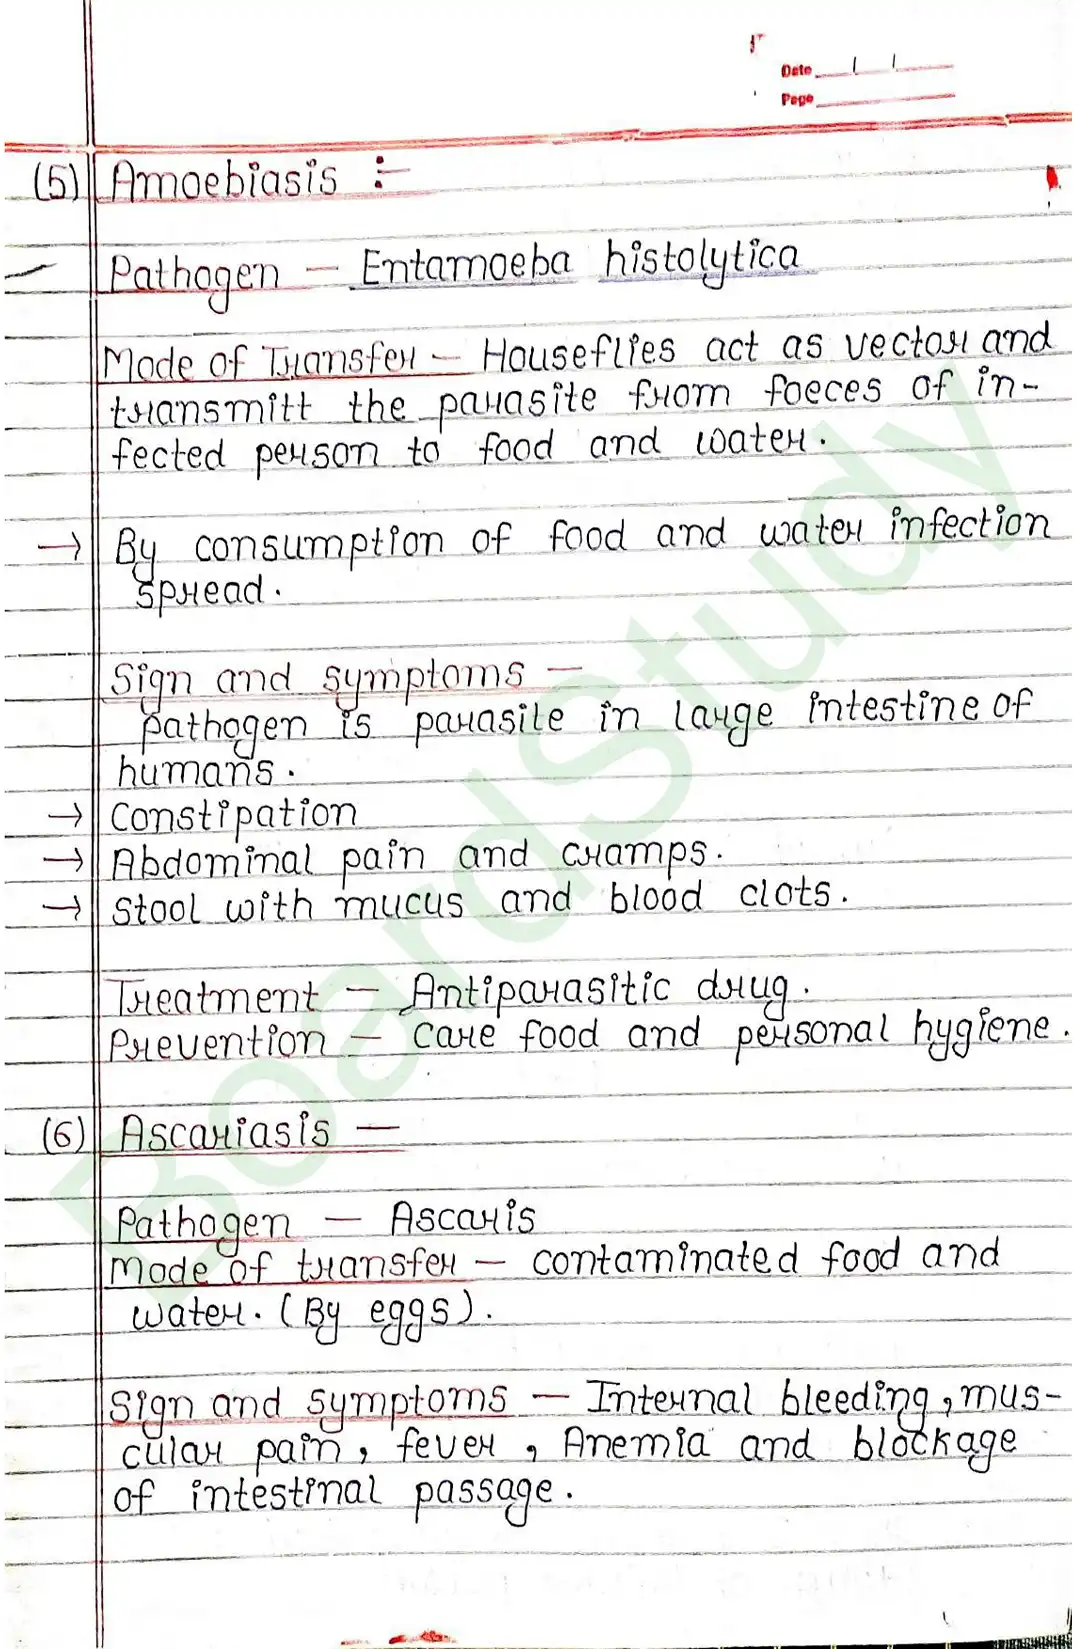 Date
Page
(5) Amoebiasis :-
Pathogen - Entamoeba histolytica
Mode of Transfer - Houseflies act as vector and
transmitt the parasite from foeces of in-
fected person to food and water.
→ By consumption of food and water infection
spread.
Sign and symptoms -
pathogen is parasite in large intestine of
humans.
→ Constipation
→ Abdominal pain and cramps.
→ Stool with mucus and blood clots.
Treatment - Antiparasitic drug.
Prevention - Care food and personal hygiene.
(6) Ascariasis -
Pathogen - Ascaris
Mode of transfer - contaminated food and
water. (By eggs).
Sign and symptoms - Internal bleeding, mus-
cular pain, fever, Anemia and blockage
of intestinal passage.
BoardStudy